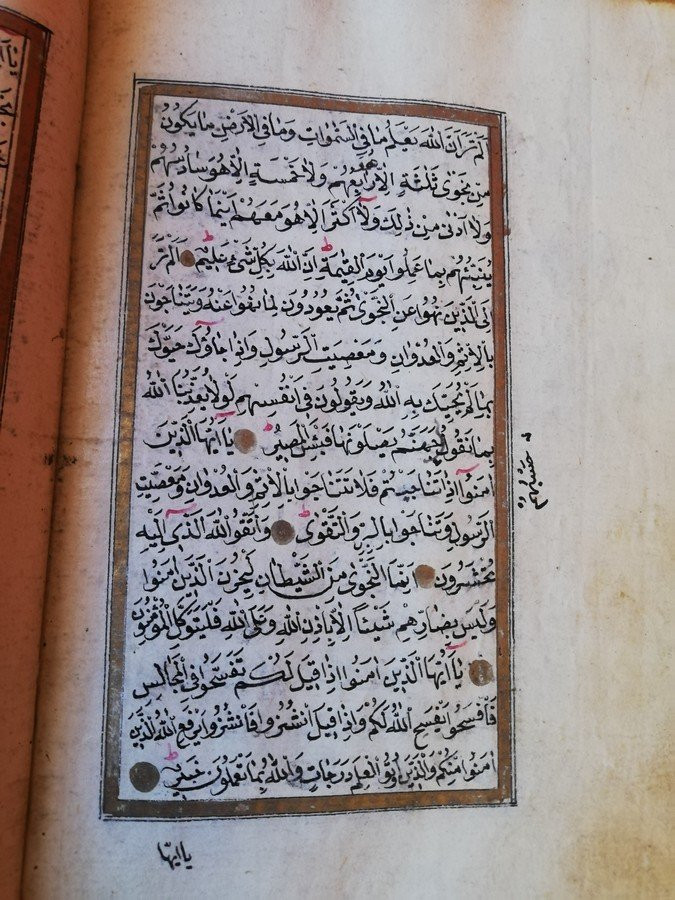 اَلَمْ تَرَ اَنَّ اللّٰهَ يَعْلَمُ مَا فِي السَّمٰوَاتِ وَمَا فِي الْاَرْضِ مَا يَكُونُ
مِنْ نَجْوٰى ثَلٰثَةٍ اِلَّا هُوَ رَابِعُهُمْ وَلَا خَمْسَةٍ اِلَّا هُوَ سَادِسُهُمْ
وَلَا اَدْنٰى مِنْ ذٰلِكَ وَلَا اَكْثَرَ اِلَّا هُوَ مَعَهُمْ اَيْنَمَا كَانُوا ثُمَّ
يُنَبِّئُهُمْ بِمَا عَمِلُوا يَوْمَ الْقِيٰمَةِ اِنَّ اللّٰهَ بِكُلِّ شَيْءٍ عَلِيمٌ اَلَمْ تَرَ
اِلَى الَّذِينَ نُهُوا عَنِ النَّجْوٰى ثُمَّ يَعُودُونَ لِمَا نُهُوا عَنْهُ وَيَتَنَاجَوْنَ
بِالْاِثْمِ وَالْعُدْوَانِ وَمَعْصِيَتِ الرَّسُولِ وَاِذَا جَاؤُكَ حَيَّوْكَ
بِمَا لَمْ يُحَيِّكَ بِهِ اللّٰهُ وَيَقُولُونَ فِي اَنْفُسِهِمْ لَوْلَا يُعَذِّبُنَا اللّٰهُ
بِمَا نَقُولُ جَهَنَّمُ يَصْلَوْنَهَا فَبِئْسَ الْمَصِيرُ يَا اَيُّهَا الَّذِينَ
حَسْبُهُمْ
اٰمَنُوا اِذَا تَنَاجَيْتُمْ فَلَا تَتَنَاجَوْا بِالْاِثْمِ وَالْعُدْوَانِ وَمَعْصِيَتِ
الرَّسُولِ وَتَنَاجَوْا بِالْبِرِّ وَالتَّقْوٰى وَاتَّقُوا اللّٰهَ الَّذِي اِلَيْهِ
تُحْشَرُونَ اِنَّمَا النَّجْوٰى مِنَ الشَّيْطَانِ لِيَحْزُنَ الَّذِينَ اٰمَنُوا
وَلَيْسَ بِضَارِّهِمْ شَيْئًا اِلَّا بِاِذْنِ اللّٰهِ وَعَلَى اللّٰهِ فَلْيَتَوَكَّلِ الْمُؤْمِنُونَ
يَا اَيُّهَا الَّذِينَ اٰمَنُوا اِذَا قِيلَ لَكُمْ تَفَسَّحُوا فِي الْمَجَالِسِ
فَافْسَحُوا يَفْسَحِ اللّٰهُ لَكُمْ وَاِذَا قِيلَ انْشُزُوا فَانْشُزُوا يَرْفَعِ اللّٰهُ الَّذِينَ
اٰمَنُوا مِنْكُمْ وَالَّذِينَ اُوتُوا الْعِلْمَ دَرَجَاتٍ وَاللّٰهُ بِمَا تَعْمَلُونَ خَبِيرٌ
يا ايها